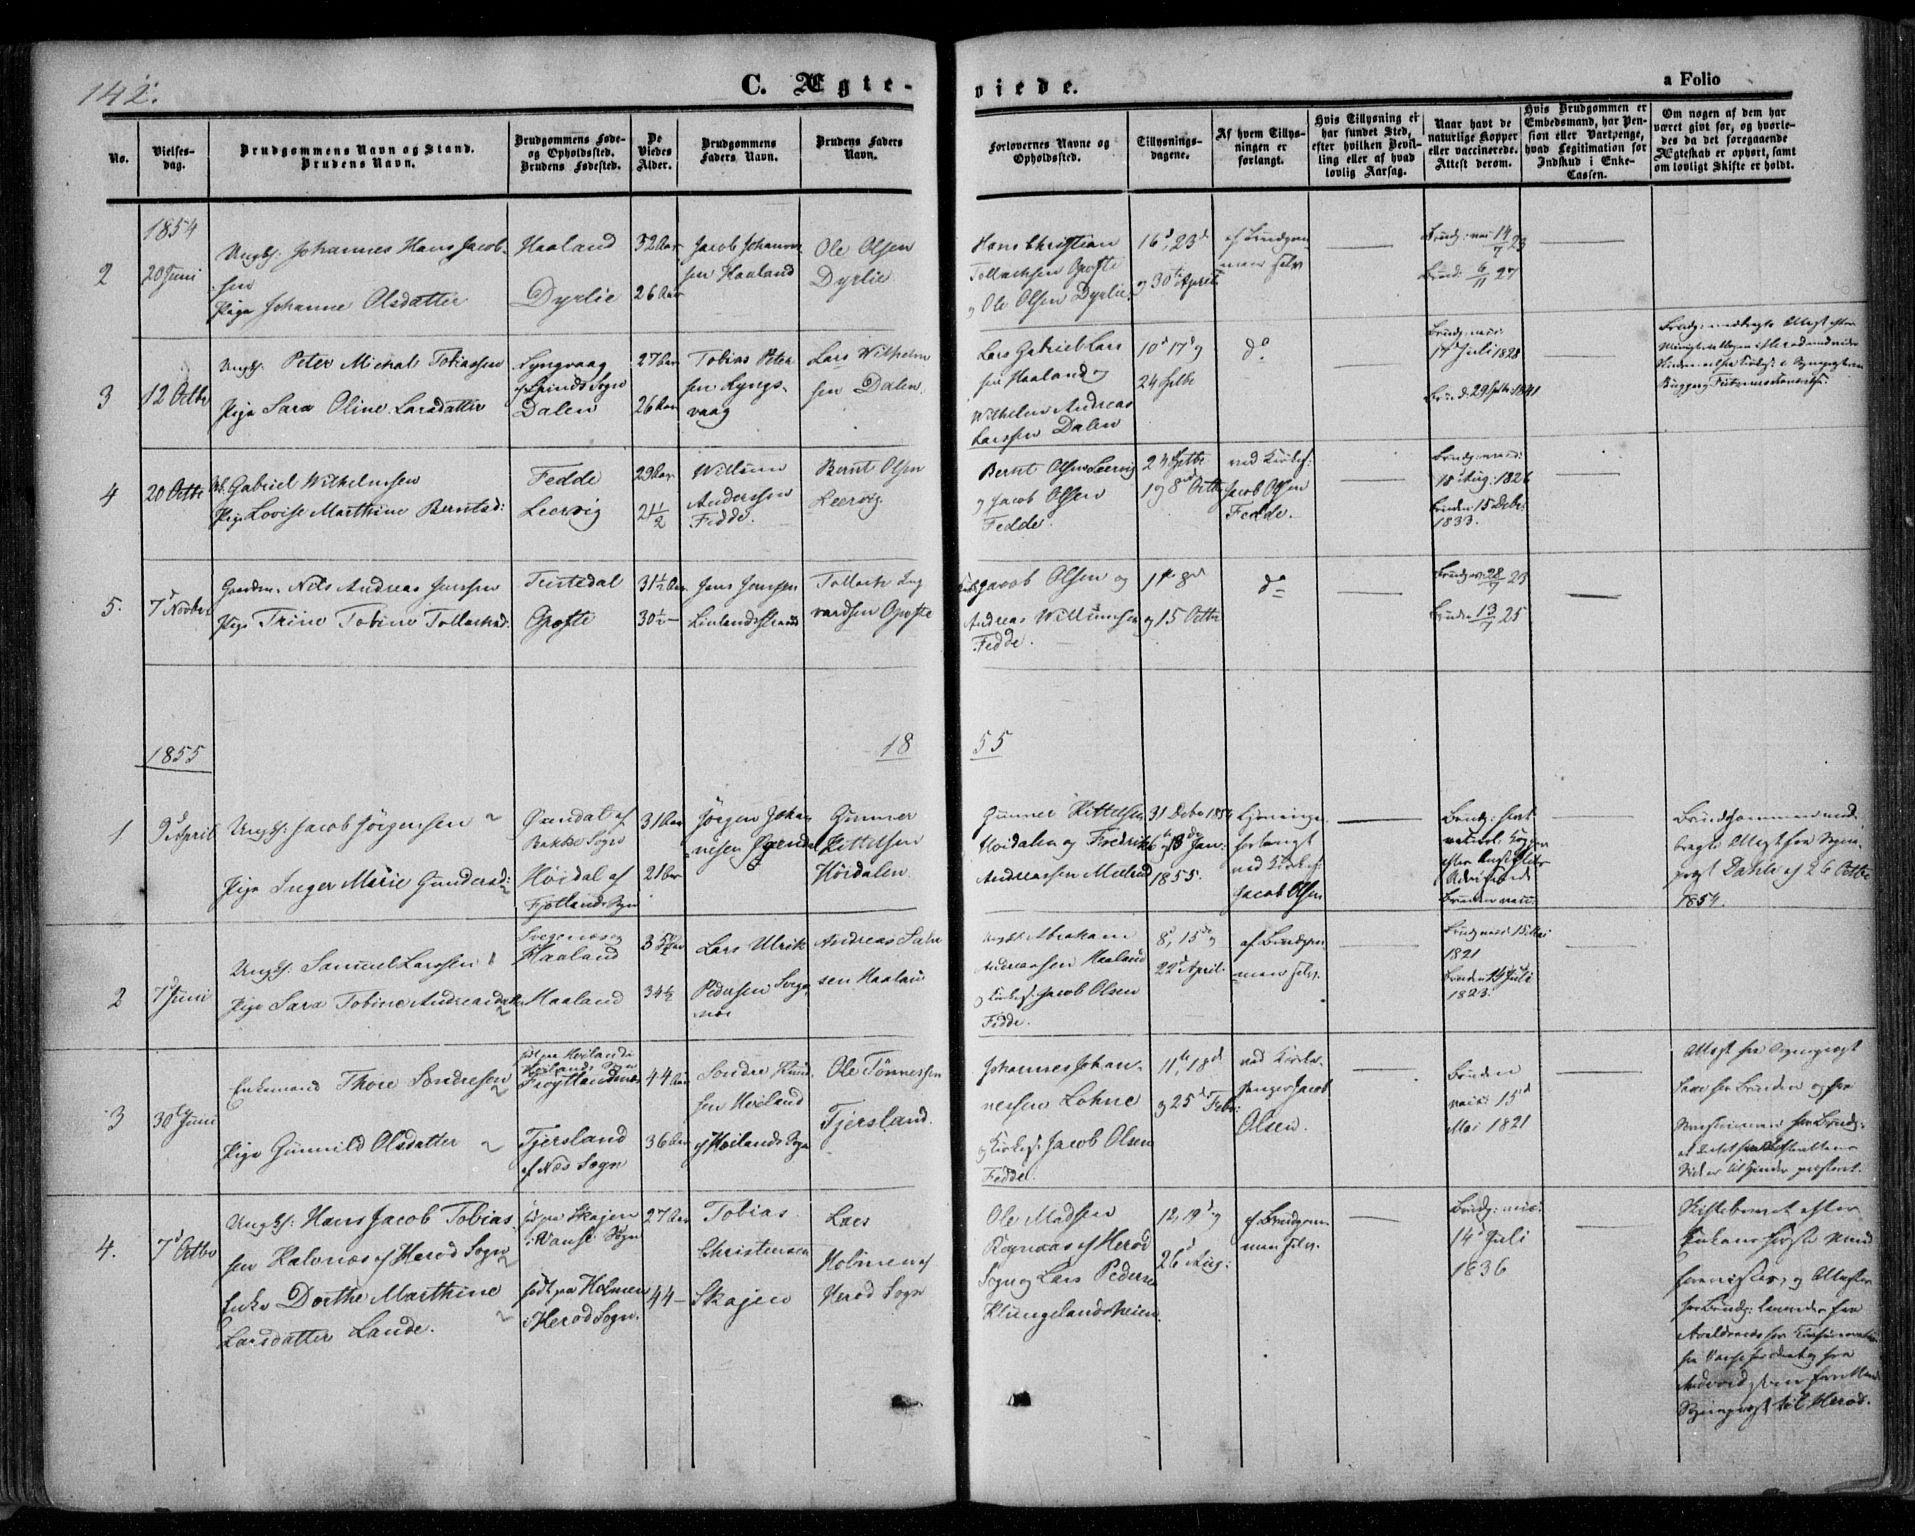 142.
C. Ægte-
viede.
a Folio
No.
Vielses-
dag.
Brudgommens Navn og Stand.
Brudens Navn.
Brudgommens Føde-
og Opholdssted.
Brudens Fødested.
De
Viedes
Alder.
Brudgommens
Faders Navn.
Brudens Faders
Navn.
Forlovernes Navne og
Opholdssted.
Tillysnings-
dagene.
Af hvem Tillys-
ningen er
forlangt.
Hvis Tillysning ei
har fundet Sted,
efter hvilken Bevil-
ling eller af hvad
lovlig Aarsag.
Naar havt de
naturlige Kopper
eller vaccinerede.
Attest derom.
Hvis Brudgommen er
Embedsmand, har Pen-
sion eller Vartpenge,
hvad Legitimation for
Indskud i Enke-
Cassen.
Om nogen af dem har
været givt før, og hvorle-
des da det foregaaende
Ægteskab er ophørt, samt
om lovligt Skifte er holdt.
1854
2
20 Juni
Ungk: Johannes Hans Jacob-
sen
Pige Johanne Olsdatter
Haaland
Dyrlie
32 Aar
26 Aar
Jacob Johannes-
sen Haaland
Ole Olsen
Dyrlie
Hans Christian
Tollachsen Opofte
og Ole Olsen Dyrlie
16d, 23d
og 30te April
af Brudgom-
men selv
Brudg: vac 14/7 23
Brud: 6/11 27
3
12 Octbr
Ungk: Peter Michal Tobiassen
Pige Sara Oline Larsdatter
Lyngvaag
af Spinds Sogn
Dalen
27 Aar
26 Aar
Tobias Peter-
sen Lyngs-
vaag
Lars Wilhelm-
sen Dalen
Lars Gabriel Lars-
sen Haaland og
Wilhelm Andreas
Larssen Dalen
10d 17d og
24 Septbr
do
Brudg: vacc:
17 Juli 1828
Brud: 29 Septbr 1841
4
20 Octbr
Gabriel Wilhelmsen
Pige Lovise Marthine Berntsd:
Fedde
Leervig
29 Aar
21 1/2
Willum
Anderssen
Fedde.
Bernt Olsen
Leervig
Bernt Olsen Leervig
og Jacob Olsen
Fedde.
24 Septbr
1 og 8de Octbr
ved Kirkes:
Jacob Olsen
Fedde.
Brudg: vacc:
15 Aug: 1826
Bruden: 15 Decbr
1833.
5.
7d Novbr
Gaardm. Nils Andreas Jenssen
Pige Trine Tobine Tollachsd.
Teistedal
Opofte
31 1/2 Aar
30 1/2 -
Jens Jenssen
Linlandsstrand
Tollach Ing-
vardsen Opofte
Jacob Olsen og
Andreas Willumsen
Fedde.
1ste 8de
og 15 Octbr
do
Brudg: vac 28/7 23
Bruden 13/7 25
1855
18
55
1
9d April
Ungk: Jacob Jørgensen
Pige Inger Marie Gundersd:
Qvindal af
Bakke Sogn
Høidal af
Fjotlands Sogn
31 Aar
21 Aar
Jørgen Joha-
nnesen
Gunner
Kittelsen
Høidalen.
Gunner Kittelsen
Høidalen og Fredrik
Andreassen
31 Decbr 1854
6te og 13de Jan:
1855.
Lysninge
forlangt
ved Kirkes:
Jacob Olsen
Brudg: havt
naturl: Kopper
efter Anstilte
Bruden vacc:
Brudgommen med-
bragte Attest fra Sogne-
præst Dahle af 26 Octbr
1854.
2
7 Juni
Ungk: Samuel Larssen
Pige Sara Tobine Andreasdatter
Svegenes og
Haaland
Haaland
35 3/4 Aar
34 1/2
Lars Ulrik
Pedersen Svege-
næs
Andreas Salve-
sen Haaland
Ungk: Abraham
Andreassen Haaland
og Kirkes: Jacob Olsen
Fedde.
8d, 15de og
22d April
af Brudgom-
men selv.
Brudg vacc: 15 Mai
1821
Bruden 14 Juli
1823.
3
30te Juni
Enkemand Thore Søndresen
Pige Gunnild Olsdatter
født paa Høilande
Høilands Sogn
Frøytlandnæs
Tjersland
af Næs Sogn
44 Aar
36 Aar
Søndre
sen Høiland
af Høilands Sogn
Ole Tønnessen
Tjersland.
Johannes Johan-
nessen Lohne
og Kirkes: Jacob Olsen
Fedde.
11te, 18de
og 25de Febr:
ved Kirke-
sanger Jacob
Olsen.
Bruden
vacc: 15d
Mai 1821
Attest fra Sognepræst
for Bruden og fra
4.
7d Octbr
Ungk: Hans Jacob Tobias-
sen Kalvnæs af Herod Sogn
Enke Dorthe Marthine
Larsdatter Lande.
født paa Skajen
i Vanse Sogn
født paa Holmen
i Herod Sogn.
27 Aar
44 -
Tobias
Christensen
Skajen
Lars
Holmen af
Herod Sogn
Ole Madsen
Røgnaas af Herod
Sogn og Lars Pedersen
Klungelandsheien.
12, 19d og
26d Aug:
af Brudgom-
men selv.
Brudg: vacc:
14d Juli
1836
Skiftebrevet efter
Enkens første Mand
forevistes, og Attester
for Brudg:
Sognepræst til Herod.